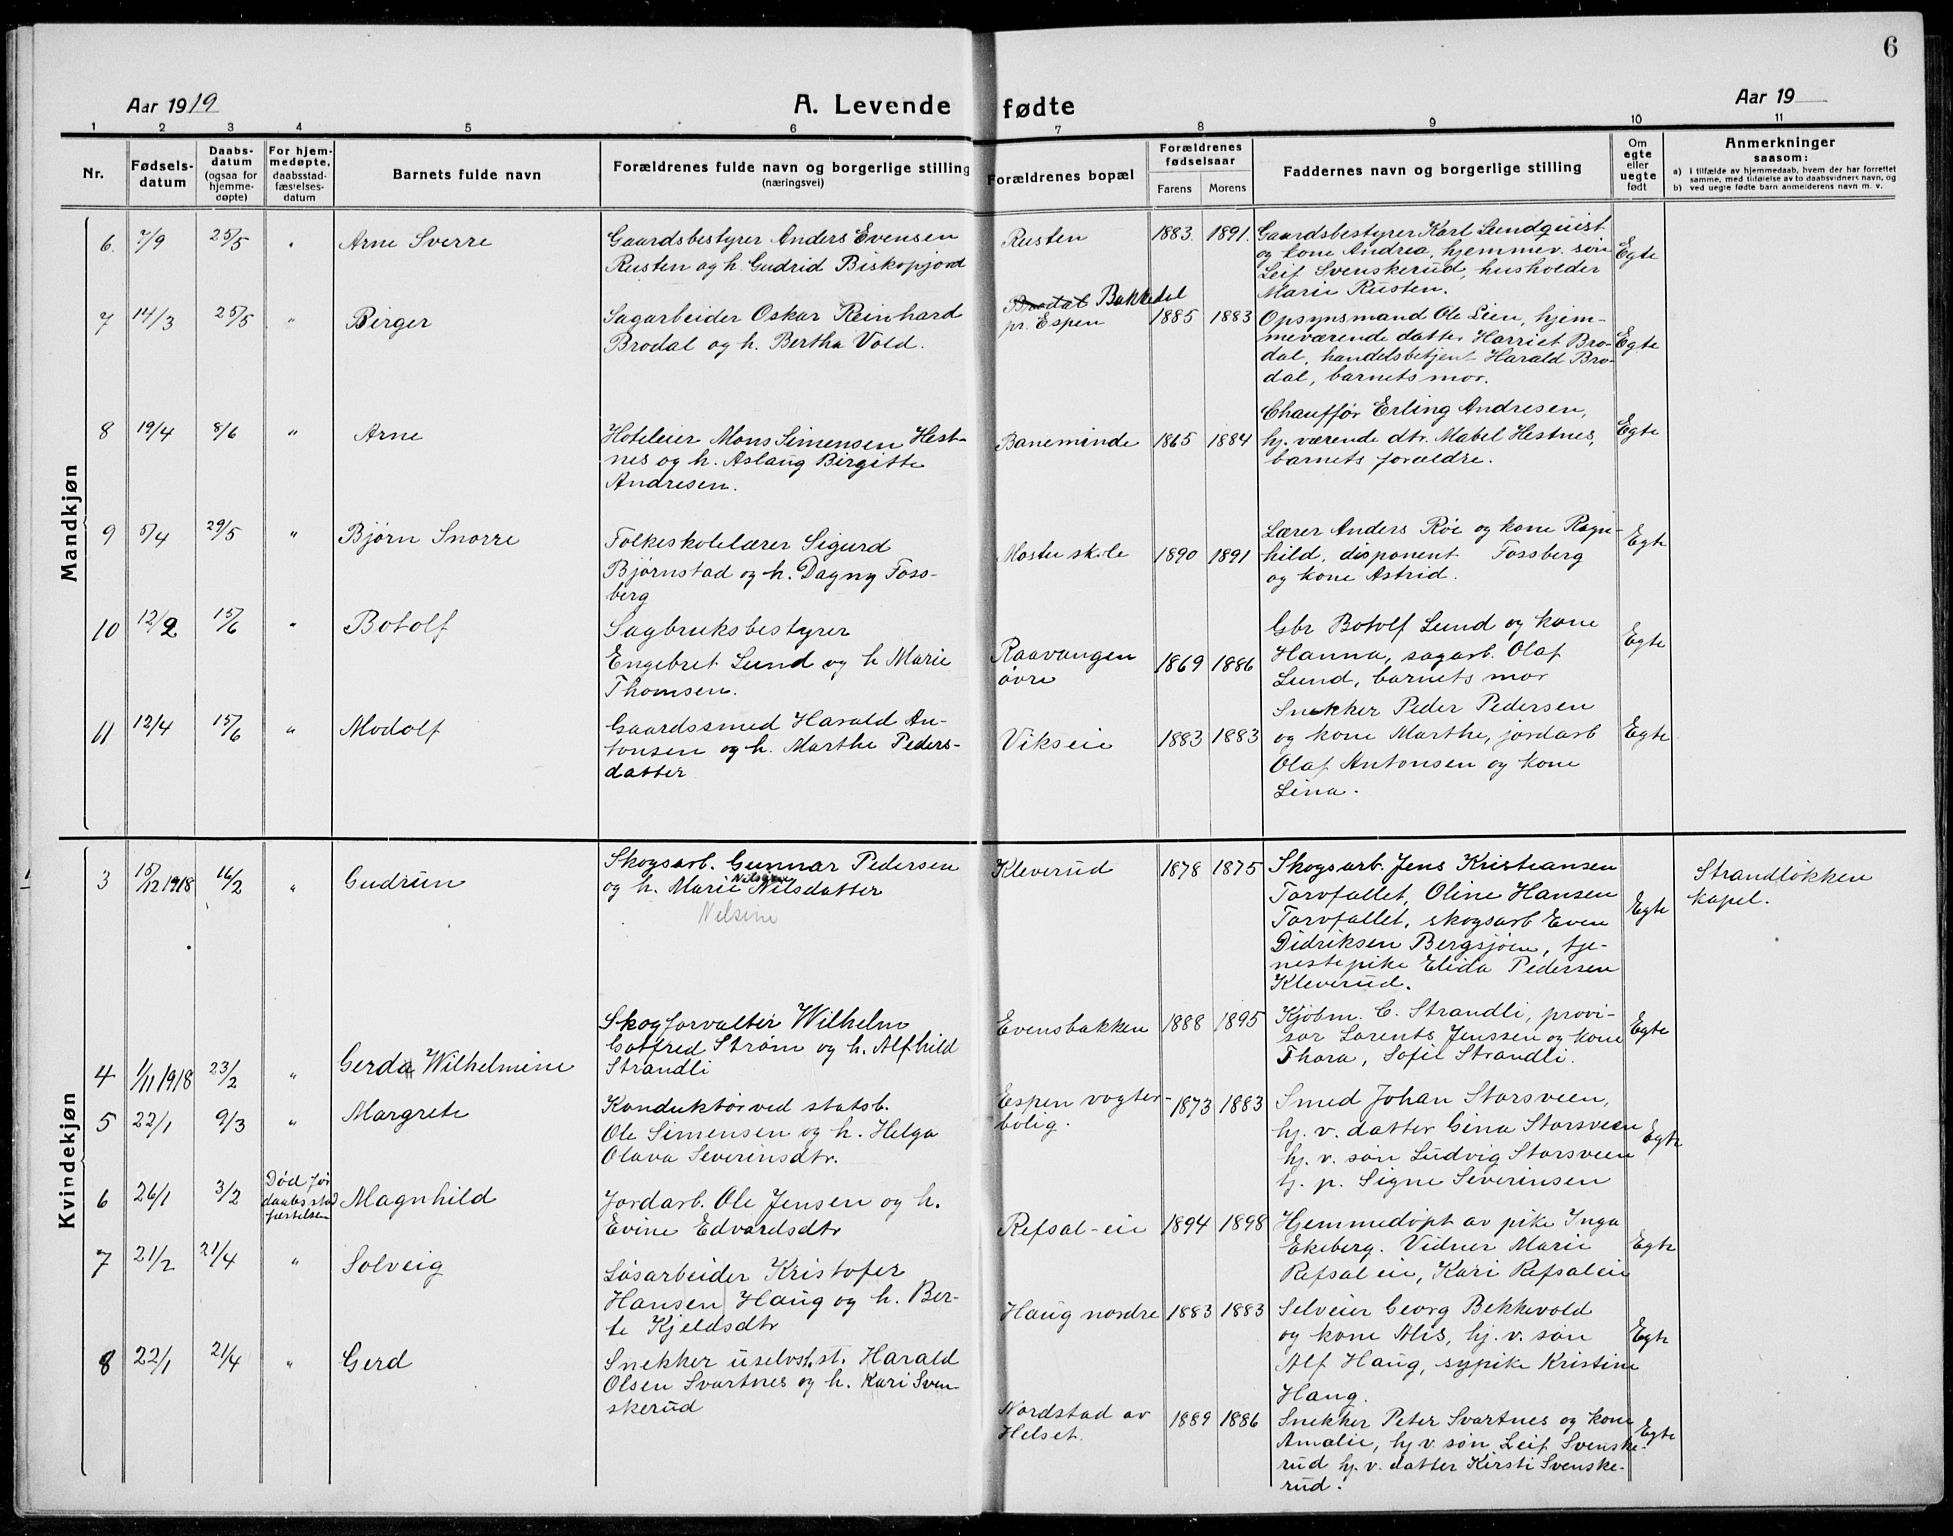 6
Aar 1919
A. Levende fødte
Aar 19
1 2 3 4 5 6 7 8 9 10 11
Nr.
Fødsels-
datum
Daabs-
datum
(ogsaa for
hjemme-
døpte)
For hjem-
medøpte,
daabsstad-
fæstelses-
datum
Barnets fulde navn
Forældrenes fulde navn og borgerlige stilling
(næringsvei)
Forældrenes bopæl
Forældrenes
fødselsaar
Farens Morens
Faddernes navn og borgerlige stilling
Om
egte
eller
uegte
født
Anmerkninger
saasom:
a) I tilfælde av hjemmedaab, hvem der har forrettet
samme, med tilføielse av to daabsvidners navn, og
b) ved uegte fødte barn anmelderens navn m. v.
Mandkjøn
6. 7/9 25/5 " Arne Sverre
Gaardsbestyrer Anders Evensen
Rusten og h. Gudrid Biskopjord
Rusten 1883. 1891.
Gaardsbestyrer Karl Lundquist
og kone Andrea, hjemmev. søn
Leif Svenskerud, husholder
Marie Rusten.
Egte
7 14/3 25/5 " Birger
Sagarbeider Oskar Reinhard
Brodal og h. Bertha Vold.
Brodal Bakkedal
pr. Espen 1885 1883
Opsynsmand Ole Lien, hjem-
meværende datter Harriet Bro-
dal, handelsbetjent Harald Bro-
dal, barnets mor.
Egte
8 19/4 8/6 " Arne
Hoteleier Mons Simensen Hest-
nes og h. Aslaug Birgitte
Andresen.
Baneminde 1865 1884
Chauffør Erling Andresen,
hj. værende dtr. Mabel Hestnes,
barnets forældre.
Egte
9 5/4 29/5 " Bjørn Snorre
Folkeskolelærer Sigurd
Bjørnstad og h. Dagny Foss-
berg
Mostu skole 1890 1891
Lærer Anders Røe og kone Ragn-
hild, disponent Fossberg
og kone Astrid.
Egte
10 12/2 15/6 " Botolf
Sagbruksbestyrer
Engebret Lund og h Marie
Thomsen.
Raavangen
øvre 1869 1886
Gbr Botolf Lund og kone
Hanna, sagarb. Olaf
Lund, barnets mor
Egte
11 12/4 15/6 " Modolf
Gaardssmed Harald An-
tonsen og h. Marthe Peders-
datter
Vikseie 1883 1883
Snekker Peder Pedersen
og kone Marthe, jordarb
Olaf Antonsen og kone
Lina.
Egte
Kvindekjøn
3 15/12 1918 16/2 " Gudrun
Skogsarb. Gunnar Pedersen
og h. Marie Nilsdatter
Nilsine
Kleverud 1878 1875
Skogsarb. Jens Kristiansen
Torvfallet, Oline Hansen
Torvfallet, skogsarb Even
Didriksen Bergsjøen, tje-
nestepike Elida Pedersen
Kleverud.
Egte
Strandløkken
kapel.
4 1/11 1918 23/2 " Gerda Wilhelmine
Skogforvalter Wilhelm
Gotfred Strøm og h. Alfhild
Strandli
Evensbakken 1888 1895
Kjøbm. C. Strandli, provi-
sor Lorents Jenssen og kone
Thora, Sofie Strandli.
Egte
5 22/1 9/3 " Margrete
Konduktør ved statsb.
Ole Simensen og h. Helga
Olava Severensdtr.
Espen vogter-
bolig. 1873 1883
Smed Johan Storsveen,
hj. v. datter Gina Storsveen
hj. v. søn Ludvig Storsveen
tj. p. Signe Severinsen
Egte
6 26/1 3/2 Død før
daabsstad
fæstelsen Magnhild
Jordarb. Ole Jensen og h.
Evine Edvardsdtr
Refsal-eie 1894 1898
Hjemmedøpt av pike Inga
Ekeberg. Vidner Marie
Refsaleie, Kari Refsaleie
Egte
7 21/2 21/4 " Solveig
Løsarbeider Kristofer
Hansen Haug og h. Ber-
te Kjeldsdtr
Haug nordre 1883 1883
Selveier Georg Bekkevold
og kone Alis, hj. v. søn
Alf Haug, sypike Kristine
Haug.
Egte
8 22/1 21/4 " Gerd
Snekker uselvst.st. Harald
Olsen Svartnes og h. Kari Sven-
skerud
Nordstad av
Helset. 1889 1886
Snekker Peter Svartnes og kone
Amalie, hj v. søn Leif Svenske-
rud hj. v. datter Kirsti Svenske-
rud.
Egte